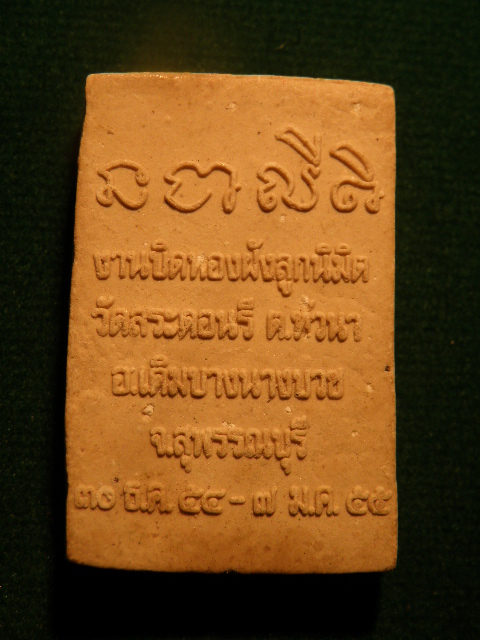 งานปิดทองฝังลูกนิมิต
วัดสระดอนรี ต.หัวนา
อ.เดิมบางนางบวช
จ.สุพรรณบุรี
๓๐ ธ.ค. ๕๔ - ๗ ม.ค. ๕๕